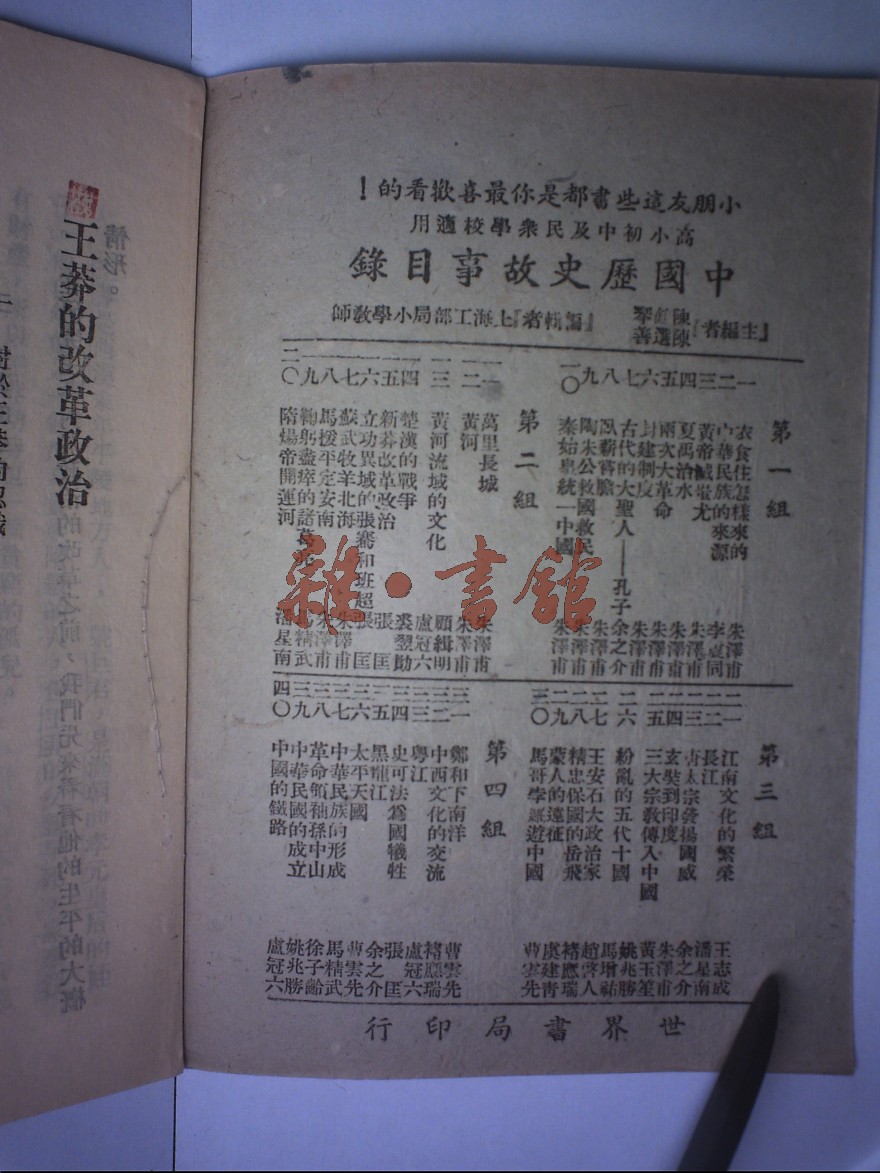 小朋友這些書都是你最喜歡看的!
高小初中及民衆學校適用
中國歷史故事目錄
主編者 陳選善
編輯者 上海工部局小學教師
第一組
一 衣食住怎樣來的 朱澤甫
二 中華民族的來源 李虞同
三 黃帝戰蚩尤 朱澤甫
四 夏禹治水 朱澤甫
五 兩次大革命 朱澤甫
六 封建制度 朱澤甫
七 古代的大聖人——孔子 余之介
八 臥薪嘗膽 朱澤甫
九 陶朱公救國救民 朱澤甫
一〇 秦始皇統一中國 朱澤甫
第二組
一一 萬里長城 朱澤甫
一二 黃河 朱澤甫
一三 黃河流域的文化 顧緝明
一四 楚漢的戰爭 盧冠六
一五 新莽改革政治 裘翌勛
一六 立功異域的張騫和班超 張匡
一七 蘇武牧羊北海 朱澤甫
一八 馬援平定安南 朱澤甫
一九 鞠躬盡瘁的諸葛亮 馬精武
二〇 隋煬帝開運河 潘星南
第三組
二一 江南文化的繁榮 王志成
二二 長江 潘星南
二三 唐太宗發揚國威 余之介
二四 玄奘到印度 朱澤甫
二五 三大宗教傳入中國 黃玉笙
二六 紛亂的五代十國 姚兆勝
二七 王安石大政治家 馬增祐
二八 精忠保國的岳飛 趙霽人
二九 蒙人的遠征 褚應瑞
三〇 馬哥孛羅遊中國 曹雲先
第四組
三一 鄭和下南洋 曹雲先
三二 中西文化的交流 褚應瑞
三三 粵江 盧冠六
三四 史可法爲國犧牲 張匡
三五 黑龍江 余之介
三六 太平天國 曹雲先
三七 中華民族的形成 馬精武
三八 革命領袖孫中山 徐子齡
三九 中華民國的成立 姚兆勝
四〇 中國的鐵路 盧冠六
世界書局印行
王莽的改革政治
的改革之前，我們先來看看他的生平的大概
情形。
雜·書館